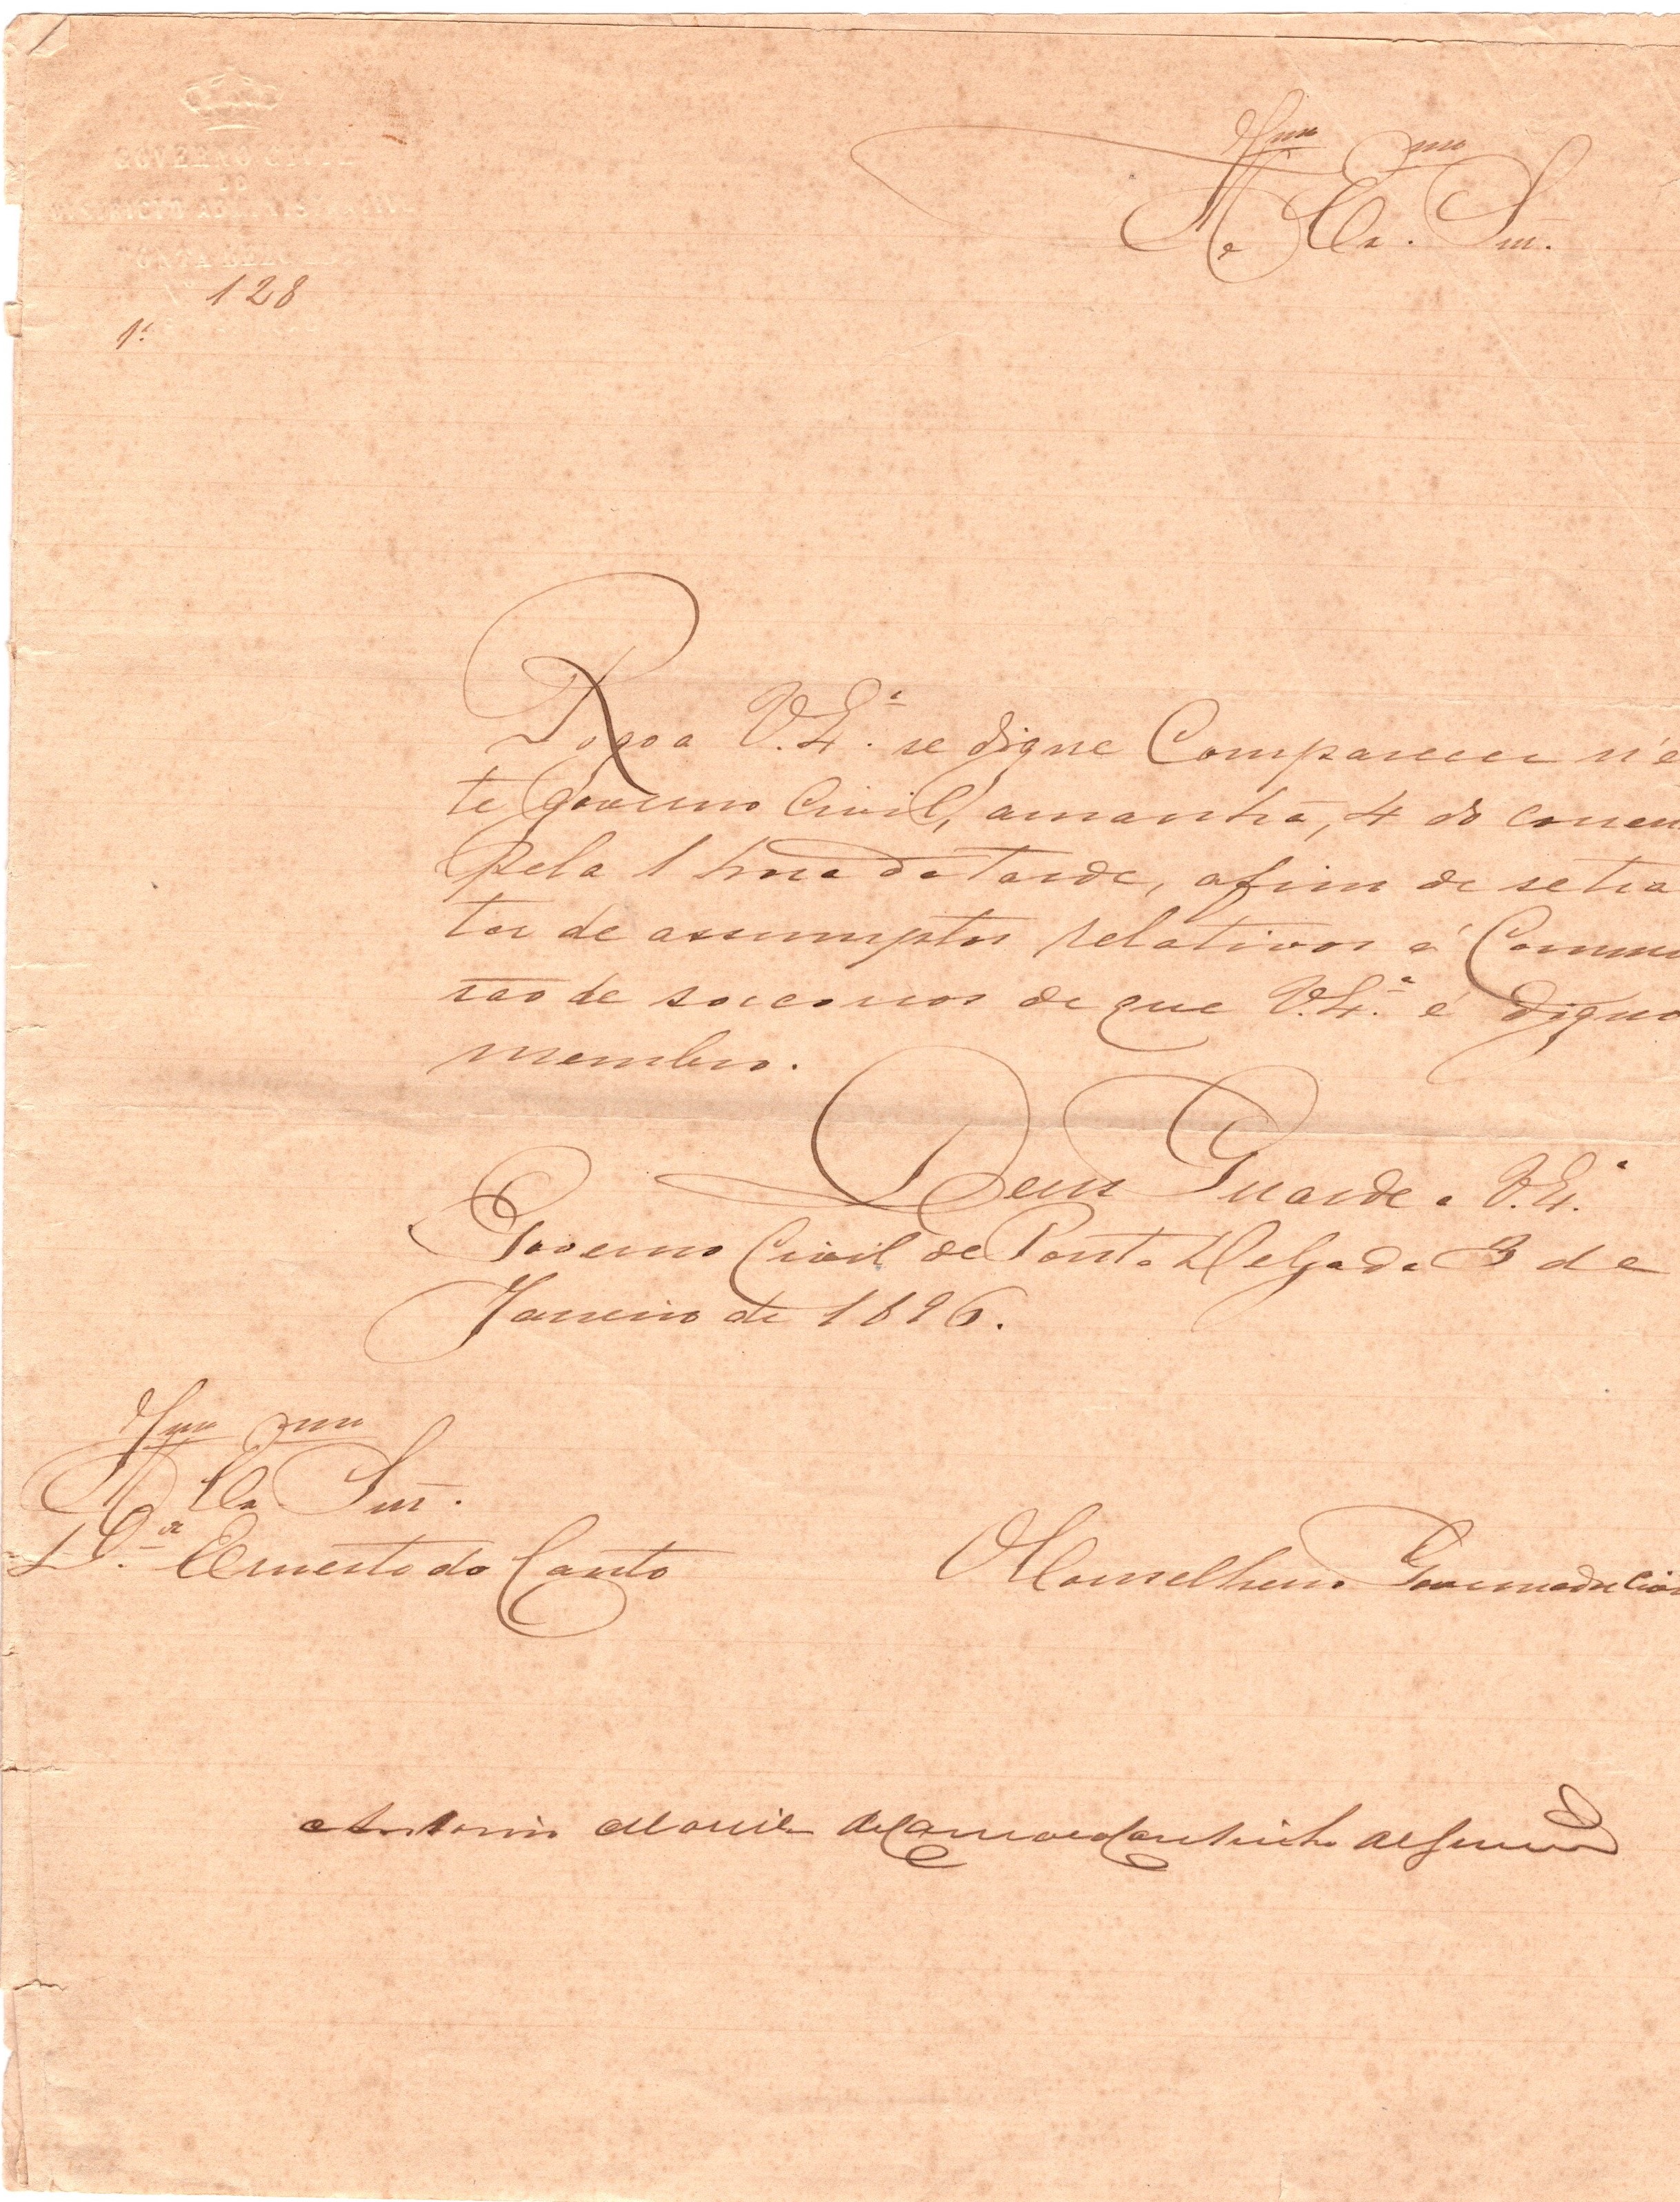 GOVERNO CIVIL
DO
DISTRICTO ADMINISTRATIVO
PONTA DELGADA
128
1.ª
Illmo Exmo Snr.
Rogo a V. Ex.ª se digne Comparecer n'es
te Governo Civil, amanhã, 4 do corren
pela 1 hora da tarde, afim de se tra
tar de assumptos relativos á Commis
são de soccorros de que V. Ex.ª é digno
membro.
Deus Guarde a V. Ex.ª
Governo Civil de Ponta Delgada 3 de
Janeiro de 1896.
Illmo Exmo Snr.
Dr. Ernesto do Canto
O Conselheiro Governador Civil